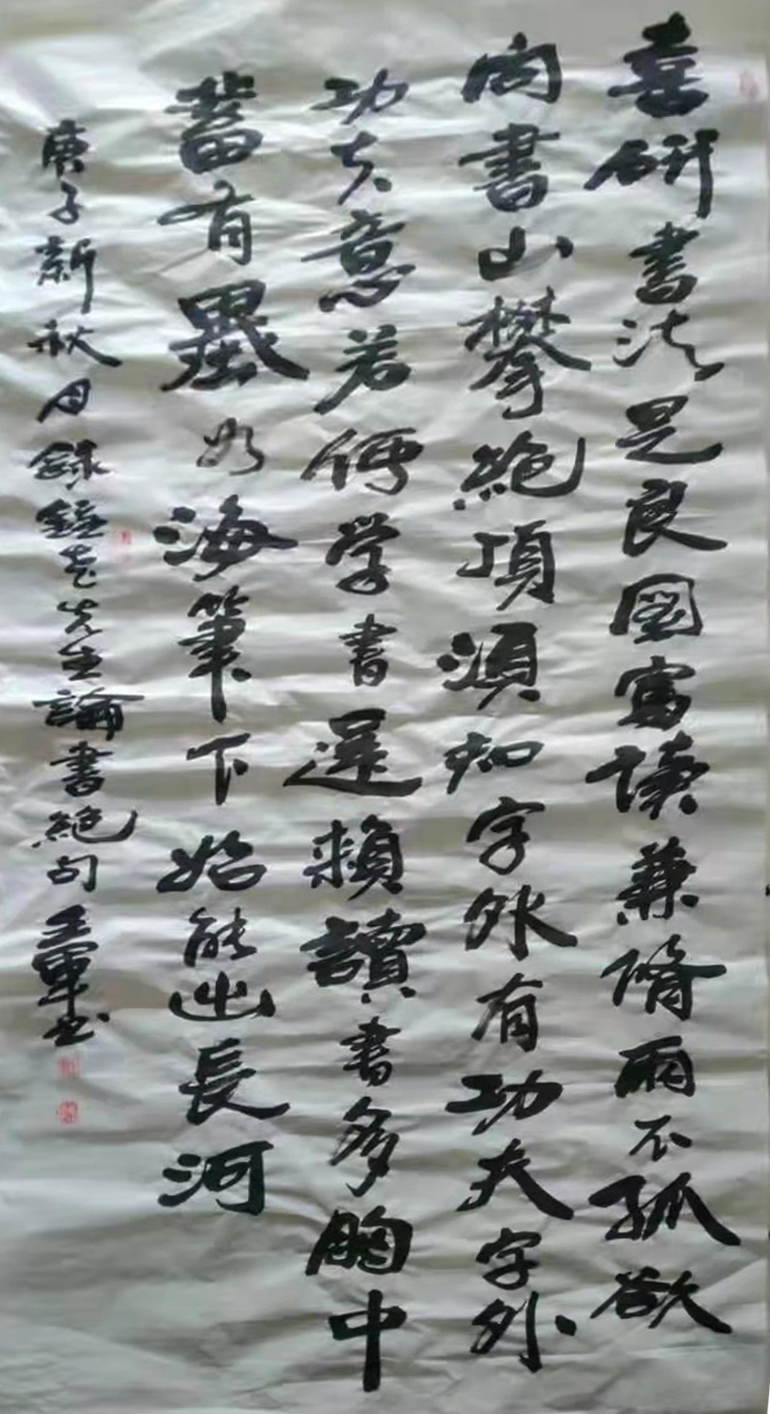 喜研書法是良圖寫讀兼脩兩不孤欲
向書山攀絶頂須知字外有功夫字外
功夫意若何学書還賴讀書多胸中
蓄有墨如海筆下始能出長河
庚子新秋月錄鍾老先生論書絶句王軍书